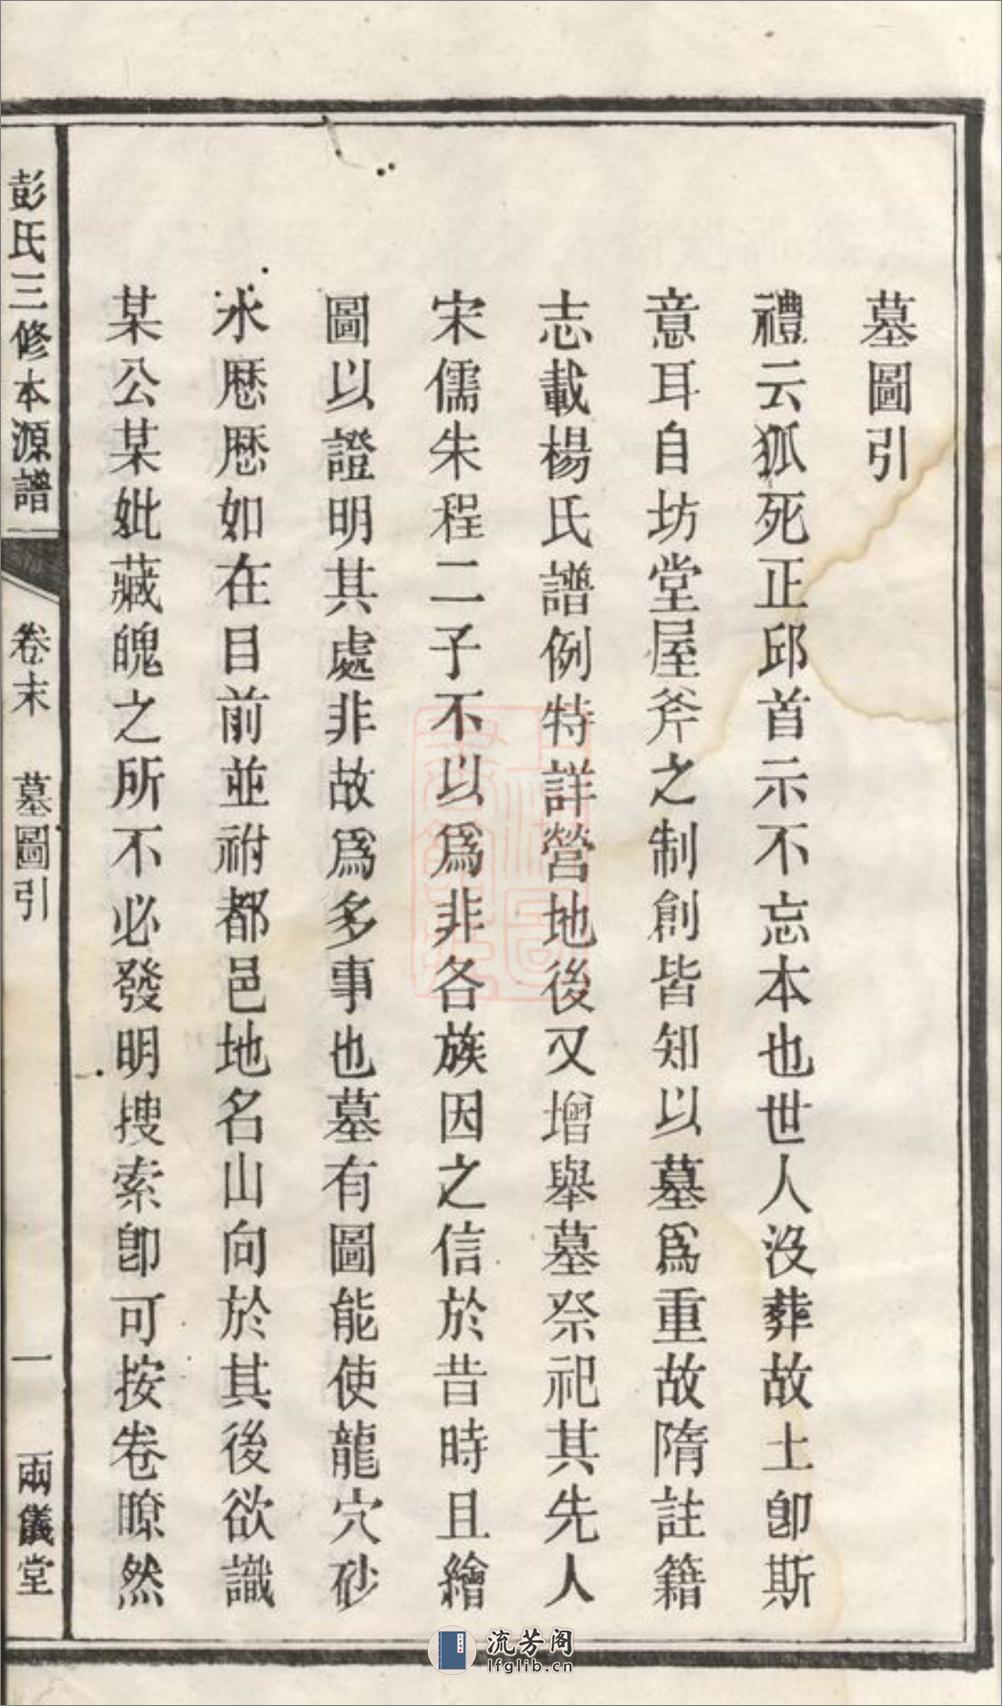 墓圖引
禮云狐死正邱首示不忘本也世人沒葬故土卽斯
意耳自坊堂屋斧之制創皆知以墓爲重故隋註籍
志載楊氏譜例特詳營地後又增舉墓祭祀其先人
宋儒朱程二子不以爲非各族因之信於昔時且繪
圖以證明其處非故爲多事也墓有圖能使龍穴砂
水歷歷如在目前並祔都邑地名山向於其後欲識
某公某妣藏魄之所不必發明搜索卽可按卷瞭然
彭氏三修本源譜 卷末 墓圖引 一 兩儀堂
流芳阁
lfglib.cn